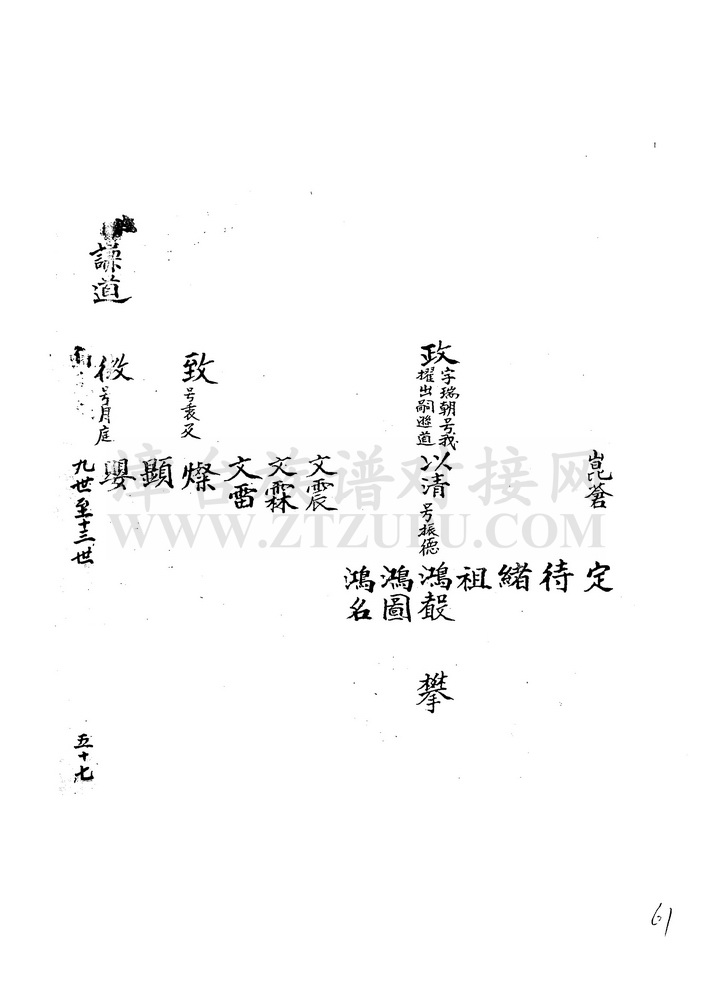 崑蒼
定
待
緒
祖
政 字瑞朝号我
擢出嗣遜道
以清 号振德
鴻
鴻圖
鴻名
攀
文震
文霖
文雷
致 号袁又
燦
顯
謙道
徴 号月庭
嬰
九世至十三世
五十七
61
埠台族谱对接网
WWW.ZTZUPU.COM